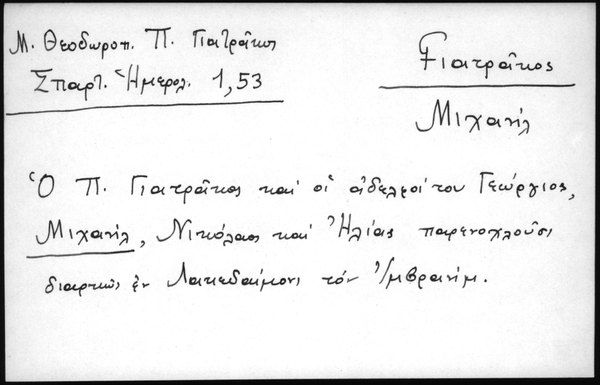 Μ. Θεοδωροπ. Π. Γιατρᾶκος
Σπαρτ. Ἡμερολ. 1,53
Γιατρᾶκος
Μιχαήλ
Ὁ Π. Γιατρᾶκος καί οἱ ἀδελφοί του Γεώργιος,
Μιχαήλ, Νικόλαος καί Ἠλίας παρενοχλοῦσι
διαρκῶς ἐν Λακεδαίμονι τόν Ἰμβραήμ.